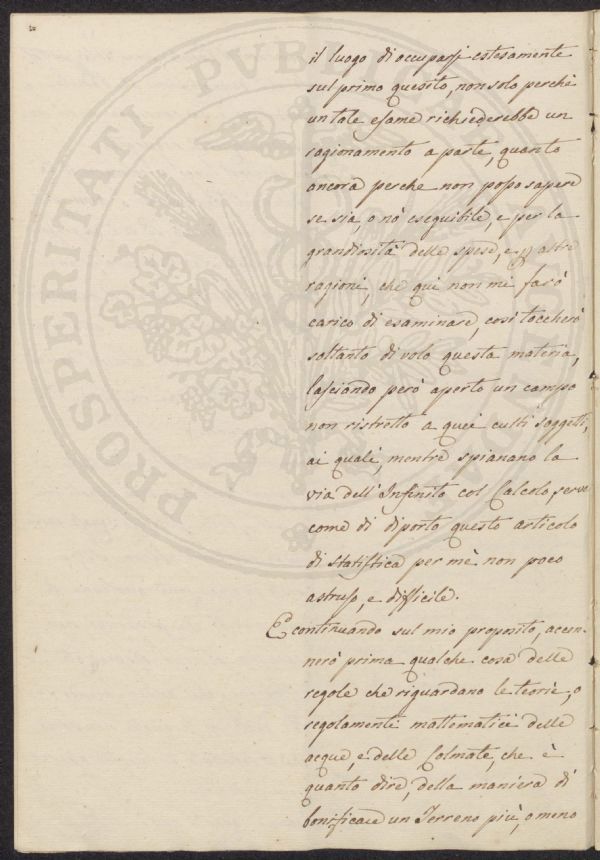 il luogo di occuparsi estesamente
sul primo quesito, non solo perchè
un tale esame richiederebbe un
ragionamento a parte, quanto
ancora perche non posso sapere
se sia, o nò eseguibile, e per la
grandiosità delle spese, e altre
ragioni, che qui non mi farò
carico di esaminare, così toccherò
soltanto di volo questa materia,
lasciando però aperto un campo
non ristretto a quei culti soggetti,
ai quali, mentre spianano la
via dell' Infinito col Calcolo, serve
come di diporto questo articolo
di Statistica per mè non poco
astruso, e difficile.
Ed continuando sul mio proposito, accen-
nerò prima qualche cosa delle
regole che riguardano le teorie, o
regolamenti mattematici delle
acque, e delle Colmate, che è
quanto dire, della maniera di
bonificare un Terreno più, o meno
PROSPERITATI PVBLICAE